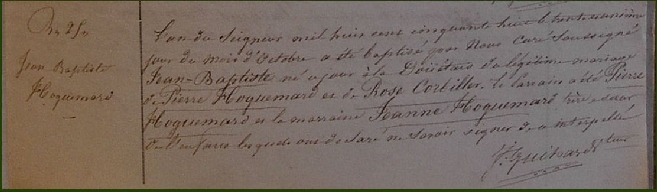 B. 25.
Jean Baptiste
Hoquemard
L'an du Seigneur mil huit cent cinquante huit le trente unième
jour du mois d'Octobre a été baptisé par Nous Curé Soussigné
Jean-Baptiste né ce jour à la du légitime mariage
de Pierre Hoquemard et de Rose le parrain a été Pierre
Hoquemard et la marraine Jeanne Hoquemard frère et sœur
de l'enfant lesquels ont déclaré ne savoir signer de ce interpellés